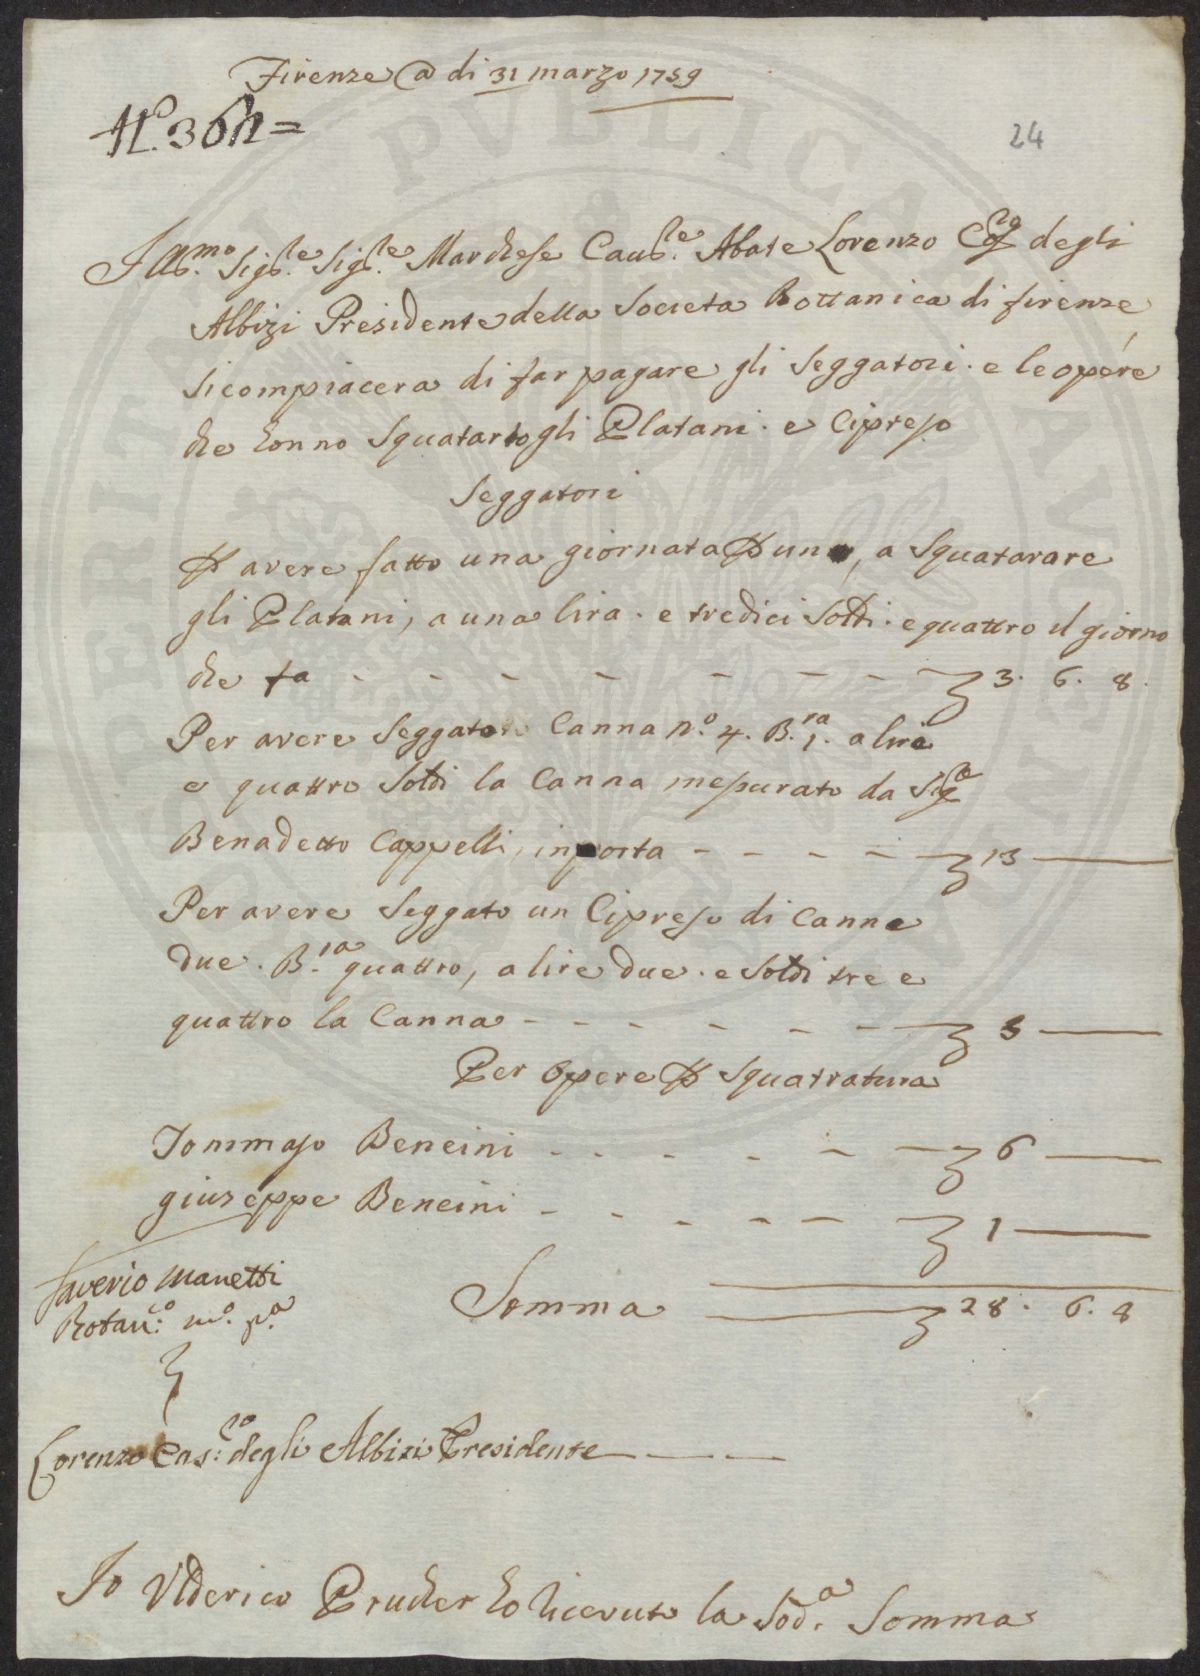 Firenze @ di 31 marzo 1759
N.º 36
24
Ill.mo Sig.re Sig.re Marchese Cav.re Abate Lorenzo degli
Albizi Presidente della Società Bottanica di firenze
si compiacera di far pagare gli Seggatori. e le opere
che honno Squatarto gli Platani. e Cipreso
Seggatori
P avere fatto una giornata P uno, a Squatarare
gli Platani, a una lira. e tredici Soldi. e quattro il giorno
che fa - - - - - - - 3. 6. 8.
Per avere Seggato Canna n.º 4. B.ra 1. a lire
e quattro Soldi la Canna mesurato da Sig.re
Benadetto Cappelli, inporta - - - - 13 —
Per avere Seggato un Cipreso di Canne
due. B.ra quattro, a lire due. e Soldi tre e
quattro la Canna - - - - - - 5 —
Per Opere P Squatratura
Tommaso Bencini - - - - - 6 —
giuseppe Bencini - - - - - 1 —
Saverio Manetti
Botan.co m.o p.a
Somma — 28. 6. 8
Lorenzo Cas.ro degli Albizi Presidente — — —
Io Vlderico Prucher ho Riceuuto la Sod.a Somma